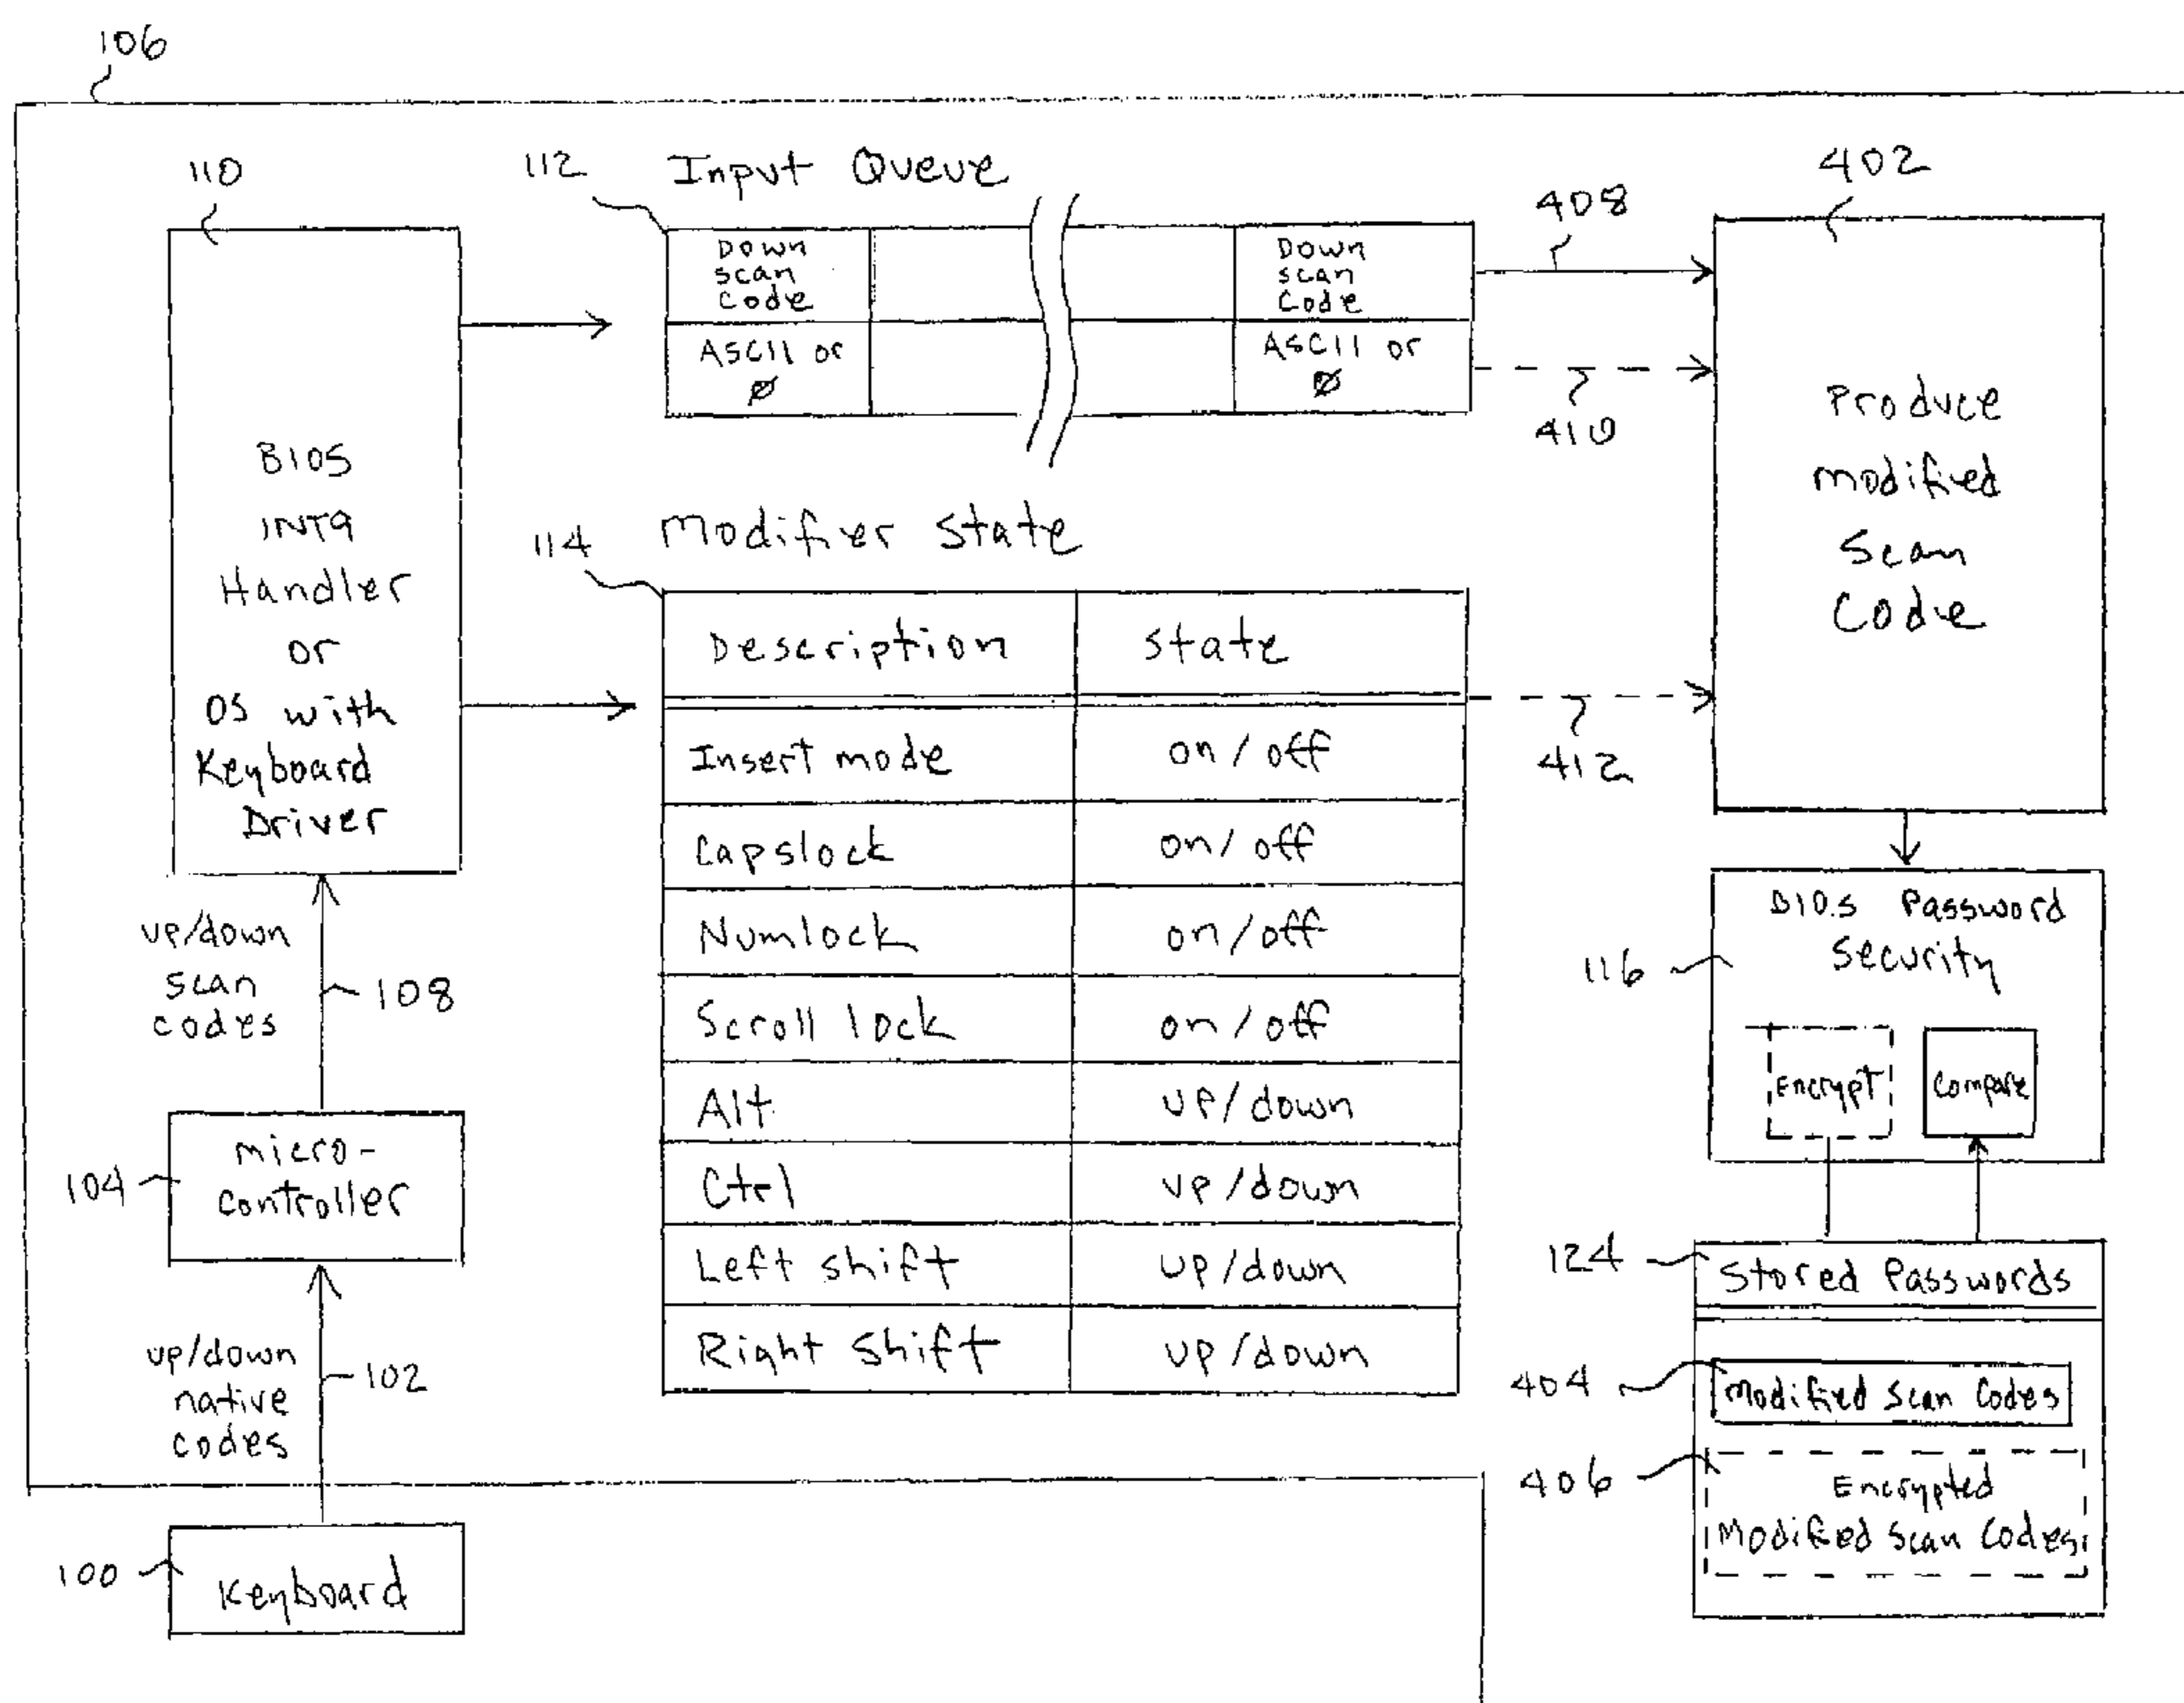 106
110
BIOS
INT9
Handler
or
OS with
Keyboard
Driver
up/down
scan
codes
108
104
micro-
controller
up/down
native
codes
102
100
Keyboard
112
Input Queue
Down
scan
Code
Down
scan
Code
ASCII or
Ø
ASCII or
Ø
408
410
114
Modifier State
Description State
Insert mode on / off
Capslock on / off
Numlock on / off
Scroll lock on / off
Alt up/down
Ctrl up/down
Left shift up/down
Right Shift up/down
412
402
Produce
modified
Scan
Code
116
BIOS Password
Security
Encrypt
Compare
124
Stored Passwords
404
Modified Scan Codes
406
Encrypted
Modified Scan Codes